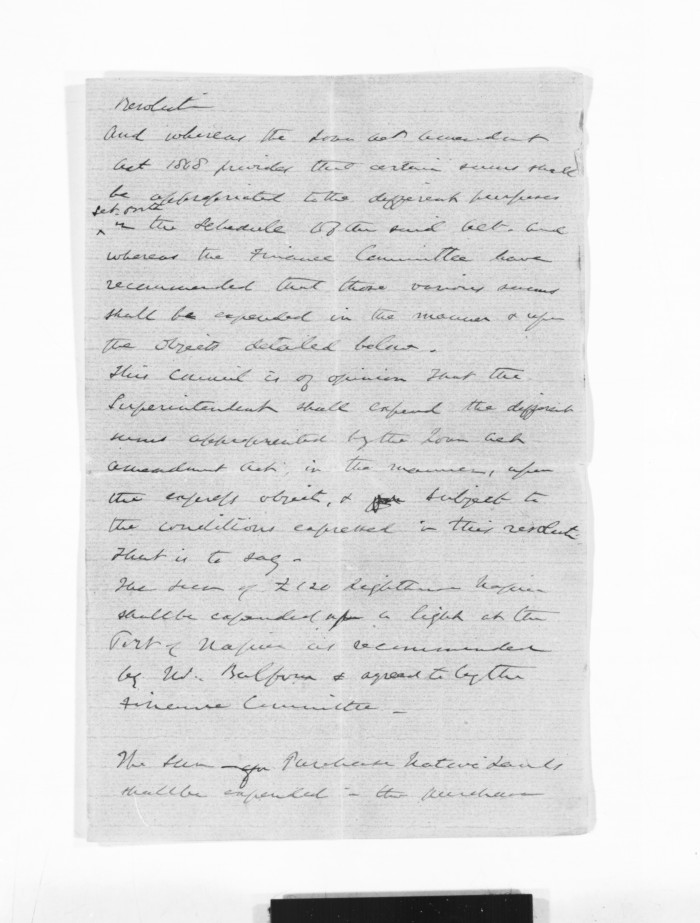 Resolution
And whereas the Loan Act Amendment
Act 1868 provides that certain sums shall
be appropriated to the different purposes
set forth
in the Schedule to the said Act. And
whereas the Finance Committee have
recommended that those various sums
shall be expended in the manner & upon
the objects detailed below.
This Council is of opinion that the
Superintendent shall expend the different
sums appropriated by the Loan Act
Amendment Act, in the manner, upon
the express objects, & subject to
the conditions expressed in this resolution
That is to say.
The sum of £120 Lighthouse Napier
shall be expended upon a light at the
Port of Napier as recommended
by Mr. Balfour & agreed to by the
Finance Committee _
The sum Purchase Native Lands
shall be expended in the purchase